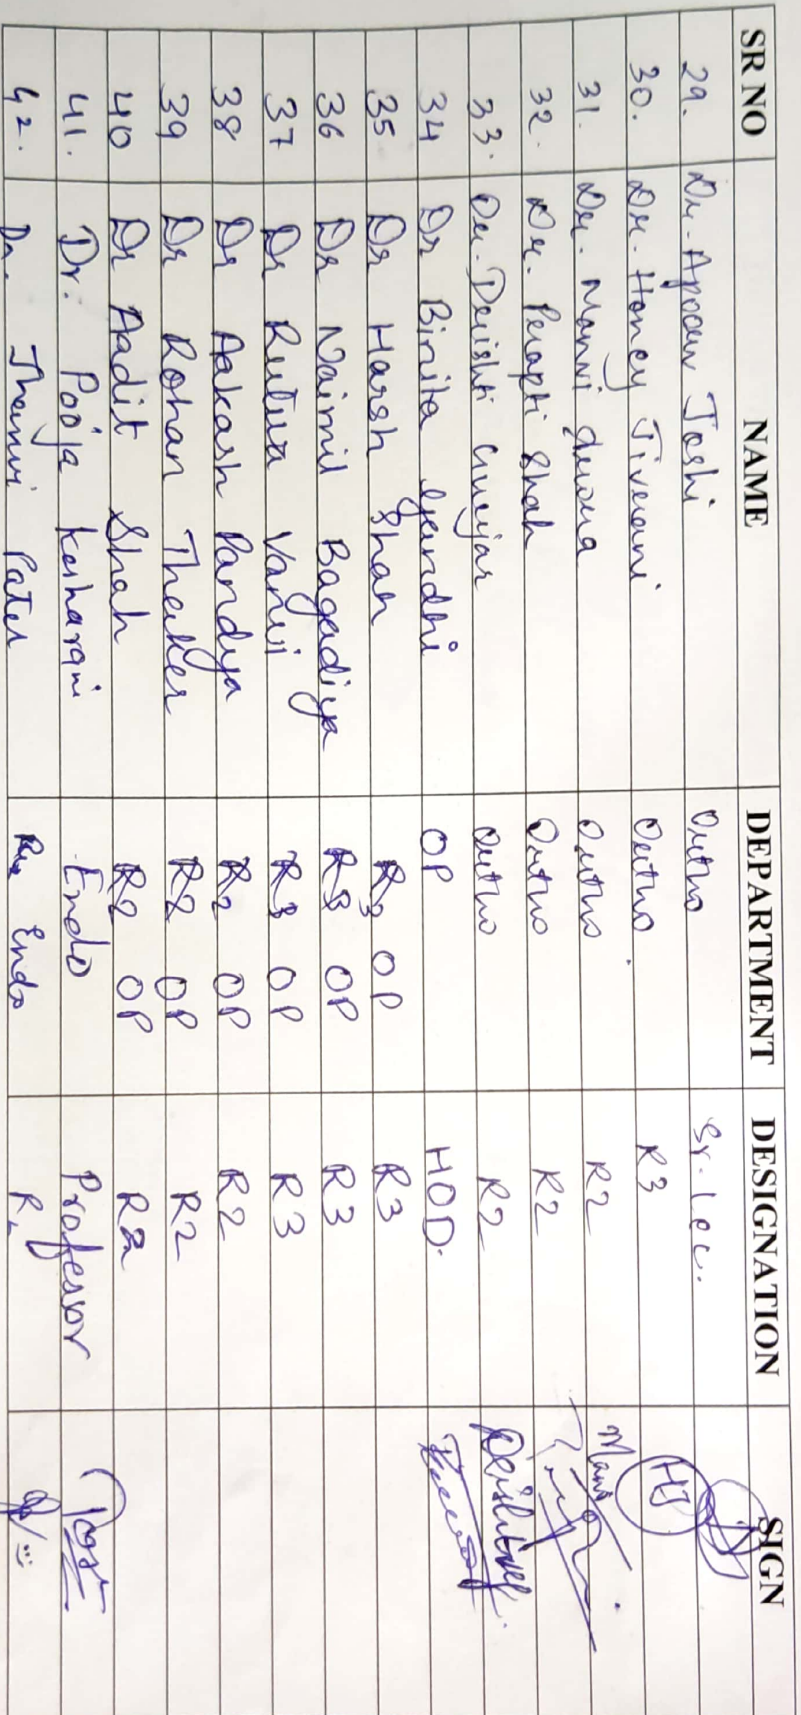 SR NO NAME DEPARTMENT DESIGNATION SIGN
29. Dr. Apoorv Joshi Ortho Sr. lec.
30. Dr. Honey Jivrani Ortho R3 HJ
31. Dr. Manvi Ortho R2
32. Dr. Prapti Shah Ortho R2
33. Dr. Drishti Gurjar Ortho R2
34 Dr Binita Gandhi OP HOD.
35 Dr Harsh Shah R3 OP R3
36 Dr Naimil Bagadiya R3 OP R3
37 Dr Rutva Vanvi R3 OP R3
38 Dr Aakash Pandya R2 OP R2
39 Dr Rohan Thakker R2 OP R2
40 Dr Aadit Shah R2 OP R2
41. Dr. Pooja Kesharani Endo Professor
42. Dr. Jhanvi Patel Endo R2